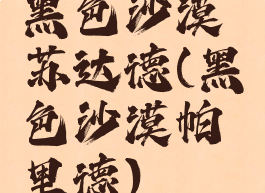 黑色沙漠
苏达德(黑
色沙漠帕
里德)